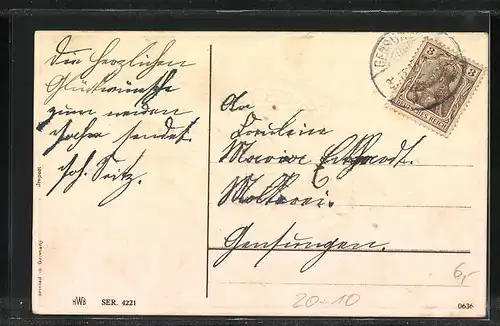 Die herzlichen
Glückwünsche
zum neuen
Jahre sendet
Joh. Seitz.
An
Fräulein
Maria
Molkerei.
Gensungen.
3 3
DEUTSCHES REICH
Import
Printed in Germany
HWB SER. 4221
0636
20-10
6,-